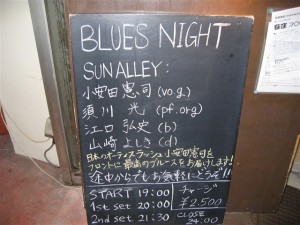 BLUES NIGHT
SUNALLEY:
小安田憲司(vo.g.)
須川 光(pf.org)
江口弘史(b)
山崎よしき(d)
日本のオーティスラッシュ小安田憲司を
フロントに最高のブルースをお届けします!
途中からでもお気軽にどうぞ!!
START 19:00
1st set 20:00
2nd set 21:30
チャージ
¥2,500
CLOSE
24:00